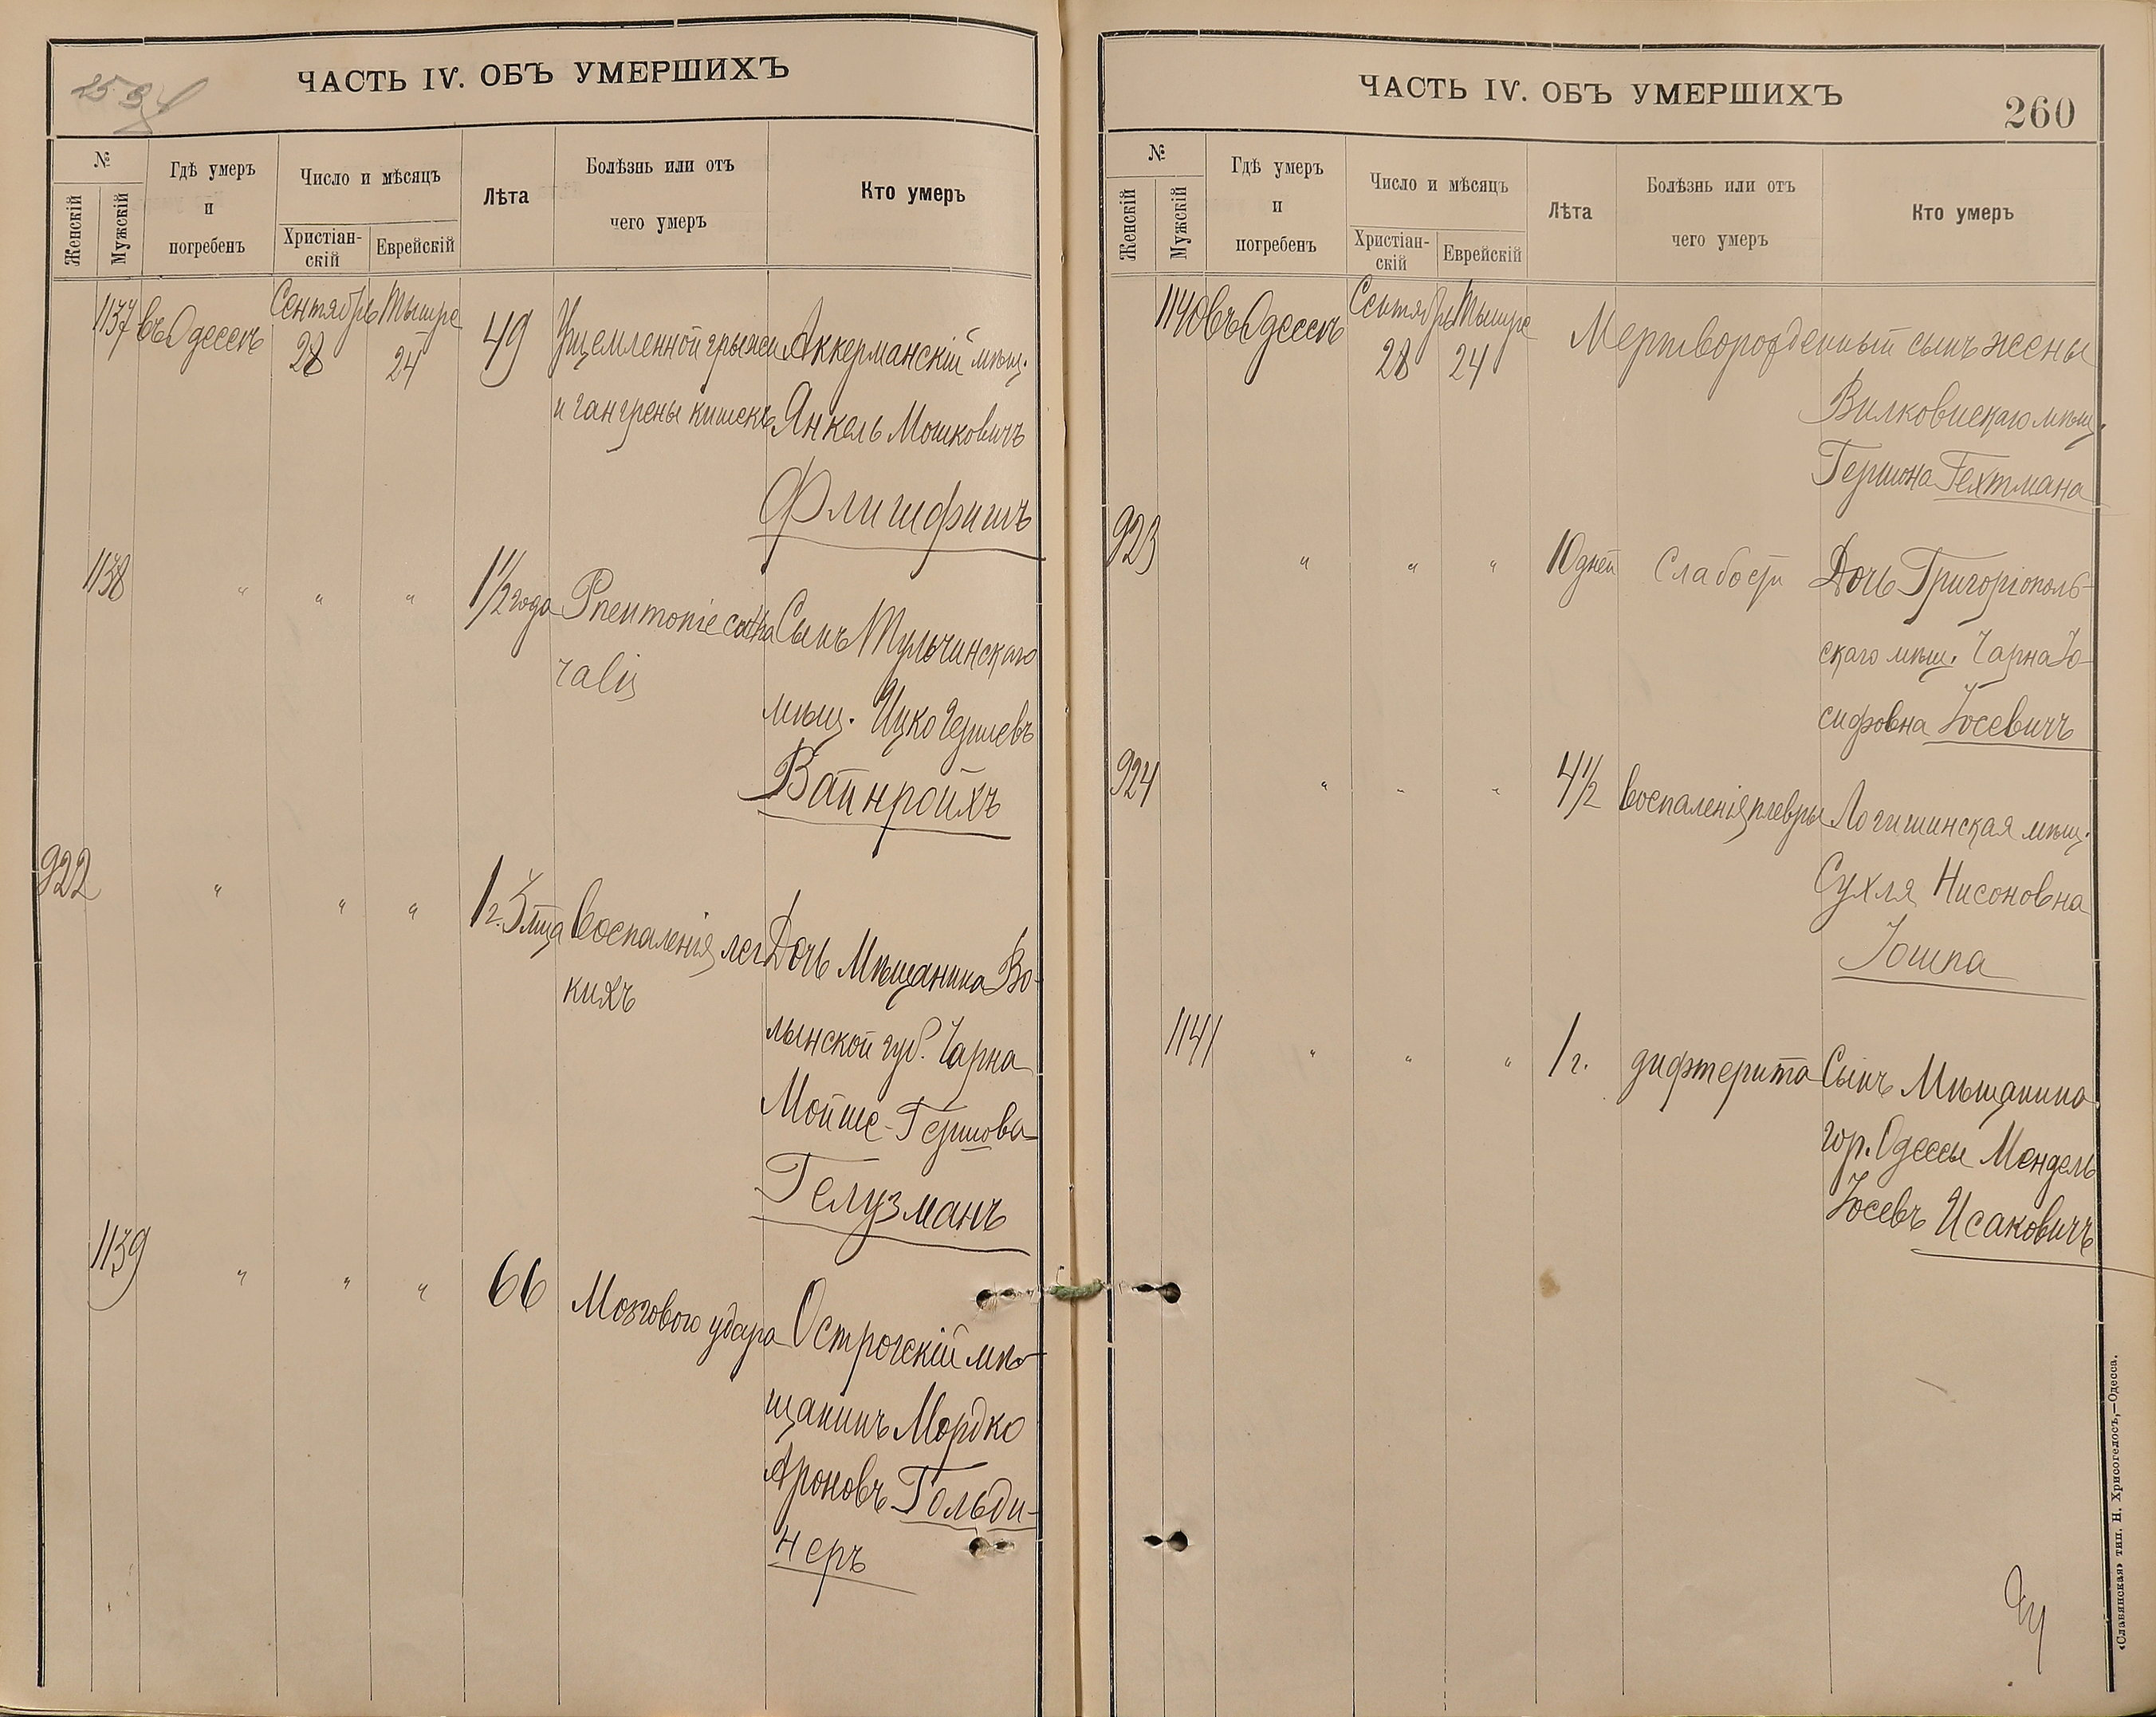 ЧАСТЬ IV. ОБЪ УМЕРШИХЪ
№
Женскій
Мужскій
Гдѣ умеръ
и
погребенъ
Число и мѣсяцъ
Христіан-
скій
Еврейскій
Лѣта
Болѣзнь или отъ
чего умеръ
Кто умеръ
1137 въ Одессѣ Сентябрь 28 Тышре 24 49 Ущемленной грыжи Аккерманскій мѣщ.
и гангрены кишекъ Янкель Мошковичъ
Флишфишъ
1138 " " " 1 1/2 года Pneumonie catha Сынъ Тульчинскаго
ralis мѣщ. Ицко Гершевъ
Вайнройхъ
922 " " " 1 г. 3 мца Воспаленія лег Дочь Мѣщанина Во-
кихъ лынской губ. Чарна
Мойше-Гершова
Гелузманъ
1139 " " " 66 Мозгового удара Острогскій мѣ-
щанинъ Мордко
Ароновъ Гольди-
неръ
ЧАСТЬ IV. ОБЪ УМЕРШИХЪ
260
№
Женскій
Мужскій
Гдѣ умеръ
и
погребенъ
Число и мѣсяцъ
Христіан-
скій
Еврейскій
Лѣта
Болѣзнь или отъ
чего умеръ
Кто умеръ
1140 въ Одессѣ Сентябрь 28 Тышре 24 Мертворожденный сынъ жены
Вилковискаго мѣщ.
Гершона Гехтмана
923 " " " 10 дней Слабости Дочь Григоріополь-
скаго мѣщ. Чарна Іо-
сифовна Іосевичъ
924 " " " 4 1/2 Воспаленія плевры Логишинская мѣщ.
Сухля Нисоновна
Іошпа
1141 " " " 1 г. дифтерита Сынъ Мѣщанина
гор. Одессы Мендель
Іосевъ Исаковичъ
«Славянская» тип. Н. Хрисогелосъ,—Одесса.